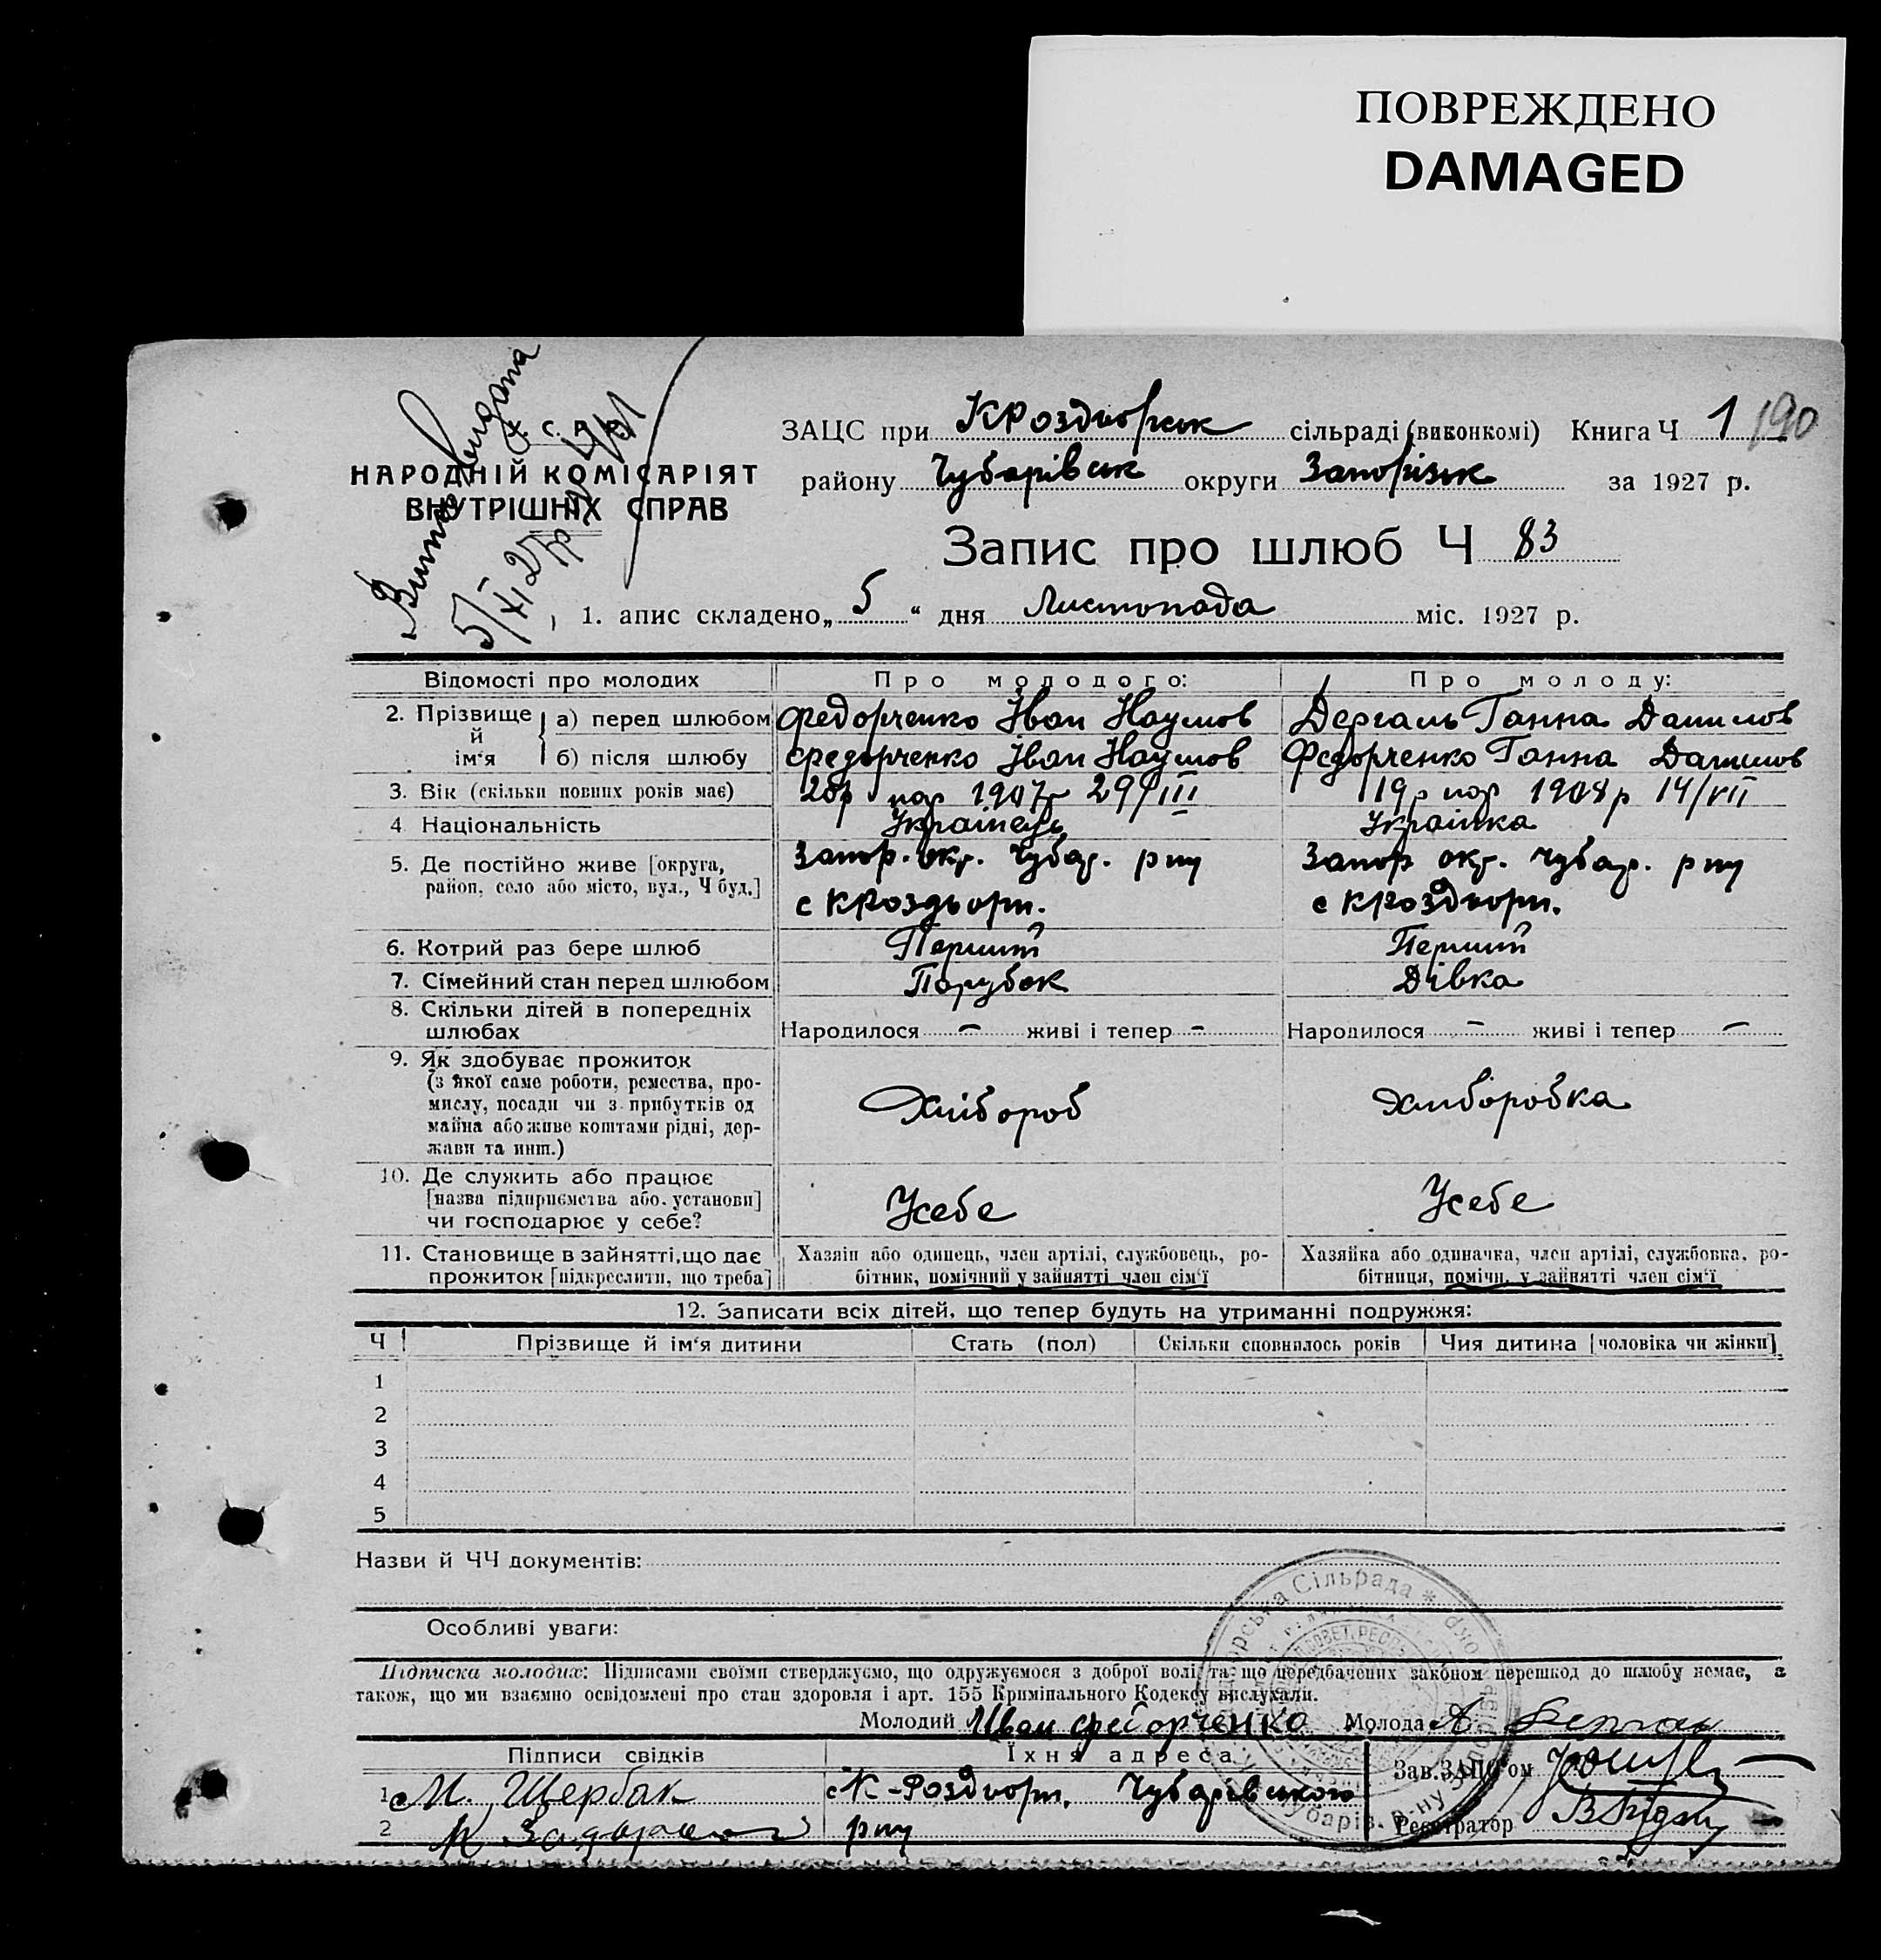 ПОВРЕЖДЕНО
DAMAGED
У. С. Р. Р.
НАРОДНІЙ КОМІСАРІЯТ
ВНУТРІШНІХ СПРАВ
Випис видана
5/XI 27р
ЗАЦС при КРоздорськ сільраді (виконкомі) Книга Ч 1 190
району Чубарівськ округи Запорізьк за 1927 р.
Запис про шлюб Ч 83
1. апис складено „ 5 “ дня Листопада міс. 1927 р.
Відомості про молодих Про молодого: Про молоду:
2. Прізвище й ім‘я а) перед шлюбом Федорченко Іван Наумов Дергаль Ганна Данилов
б) після шлюбу Федорченко Іван Наумов Федорченко Ганна Данилов
3. Вік (скільки повних років має) 20р нар 1907р 29/III 19р нар 1908р 14/VII
4 Національність Українець Українка
5. Де постійно живе [округа, Запор. окр. Чубар. рну Запор окр. Чубар. рну
район, село або місто, вул., Ч буд.] с КРоздори. с КРоздори.
6. Котрий раз бере шлюб Перший Перший
7. Сімейний стан перед шлюбом Парубок Дівка
8. Скільки дітей в попередніх
шлюбах Народилося – живі і тепер – Народилося – живі і тепер –
9. Як здобуває прожиток
(з якої саме роботи, ремества, про-
мислу, посади чи з прибутків од Хлібороб Хліборобка
майна або живе коштами рідні, дер-
жави та инш.)
10. Де служить або працює
[назва підприємства або установи] Усебе Усебе
чи господарює у себе?
11. Становище в зайнятті, що дає Хазяін або одинець, член артілі, службовець, ро- Хазяйка або одиначка, член артілі, службовка, ро-
прожиток [підкреслити, що треба] бітник, помічний у зайнятті член сім‘ї бітниця, помічн. у зайнятті член сім‘ї
12. Записати всіх дітей, що тепер будуть на утриманні подружжя:
Ч Прізвище й ім‘я дитини Стать (пол) Скільки сповнилось років Чия дитина [чоловіка чи жінки]
1
2
3
4
5
Назви й ЧЧ документів:
Особливі уваги:
Підписка молодих: Підписами своїми стверджуємо, що одружуємося з доброї волі, та що передбачених законом перешкод до шлюбу немає, а
також, що ми взаємно освідомлені про стан здоровля і арт. 155 Кримінального Кодексу вислухали.
Молодий Иван Федорченко Молода А. Дергаль
Підписи свідків Їхня адреса
1 М. Щербак с К-Роздори. Чубарівського Зав. ЗАЦС‘ом
2 рну Реєстратор
Сільрада